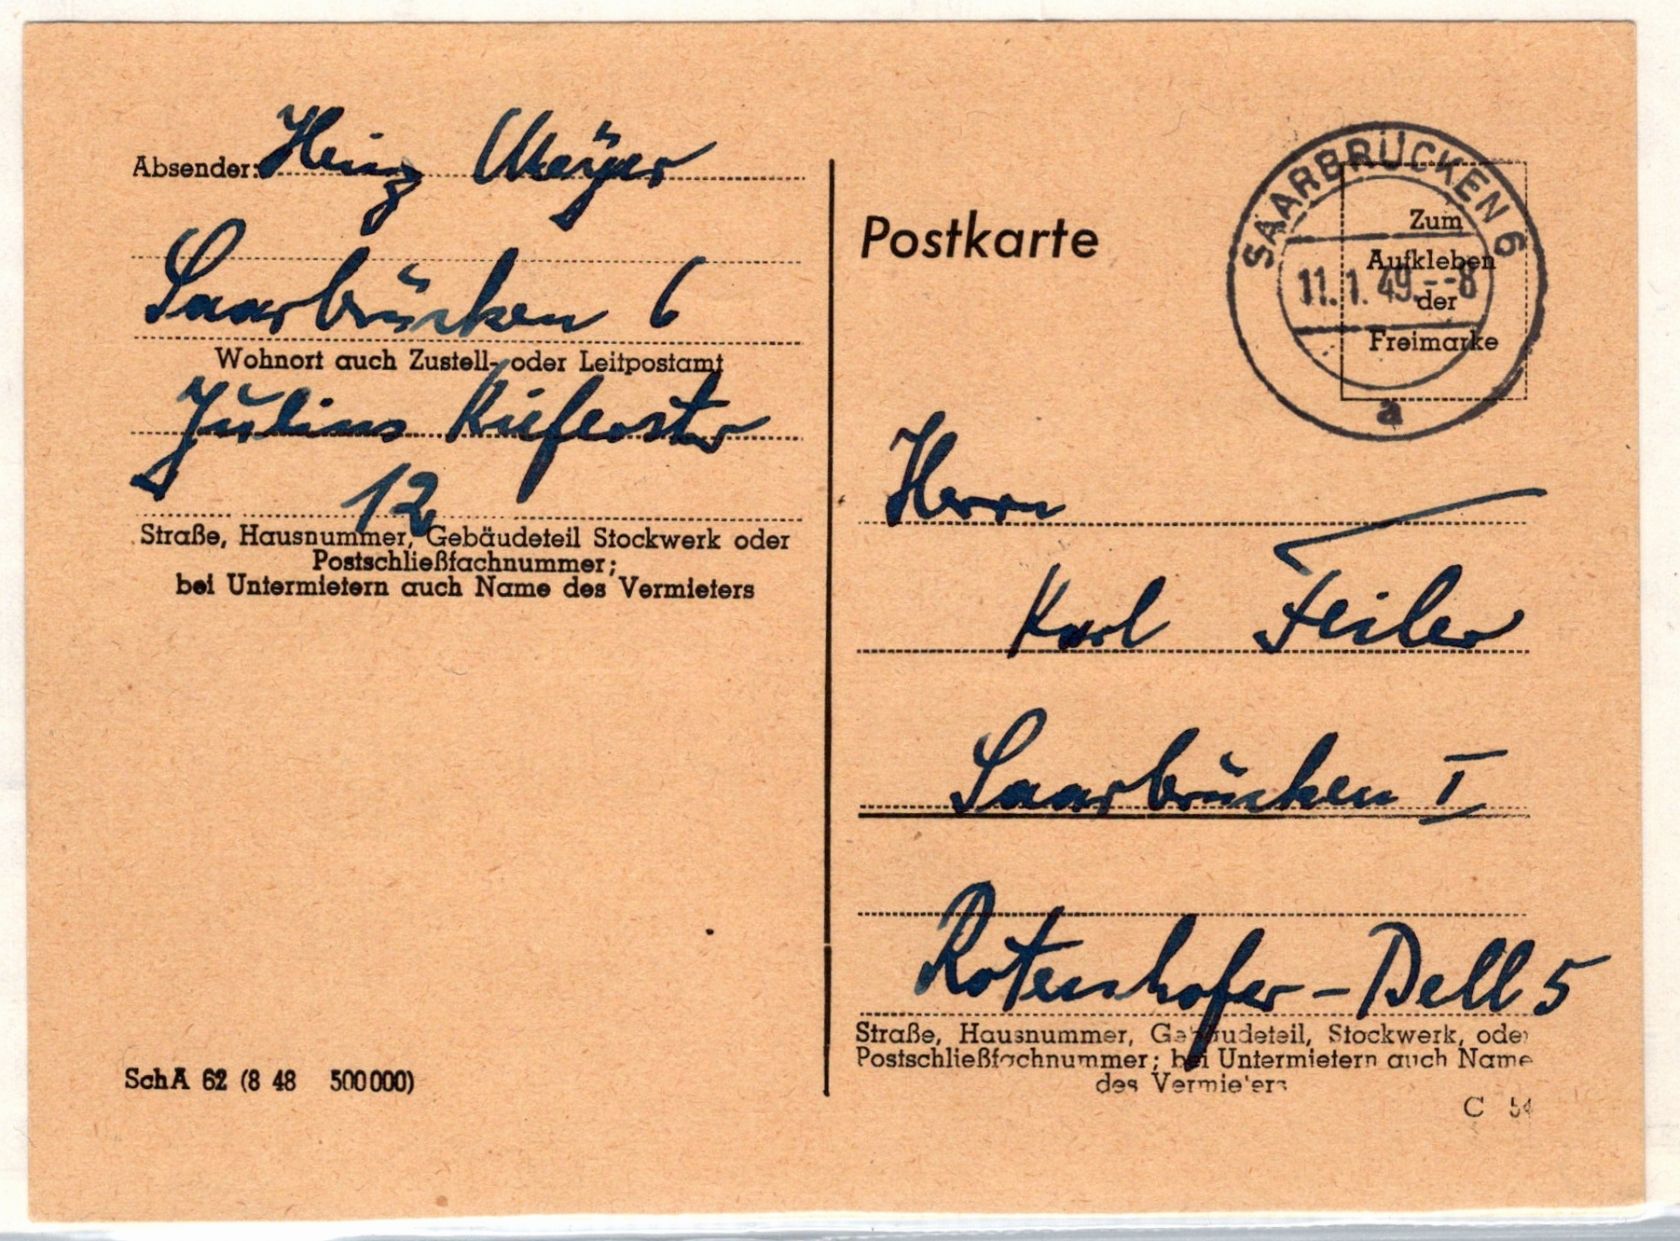 Absender: Heinz Meyer
Saarbrücken 6
Wohnort auch Zustell- oder Leitpostamt
Julius Kieferstr
12
Straße, Hausnummer, Gebäudeteil Stockwerk oder
Postschließfachnummer;
bei Untermietern auch Name des Vermieters
SchA 62 (8 48 500 000)
Postkarte
SAARBRÜCKEN 6
11.1.49.--8
a
Zum
Aufkleben
der
Freimarke
Herrn
Karl Feiler
Saarbrücken I
Rotenhofer-Dell 5
Straße, Hausnummer, Gebäudeteil, Stockwerk, oder
Postschließfachnummer; bei Untermietern auch Name
des Vermieters
C 54